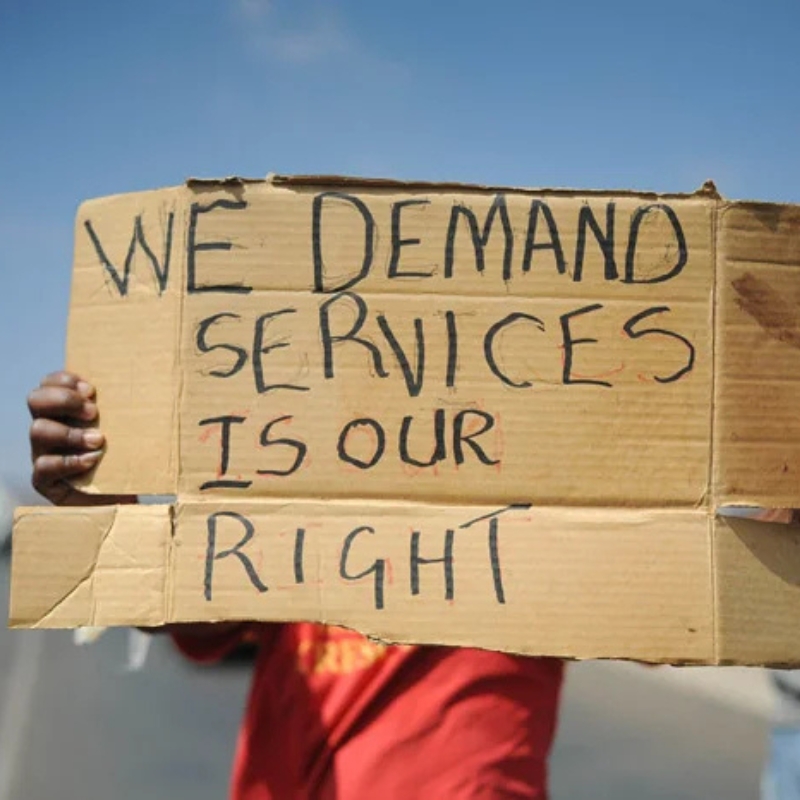 WE DEMAND
SERVICES
IS OUR
RIGHT